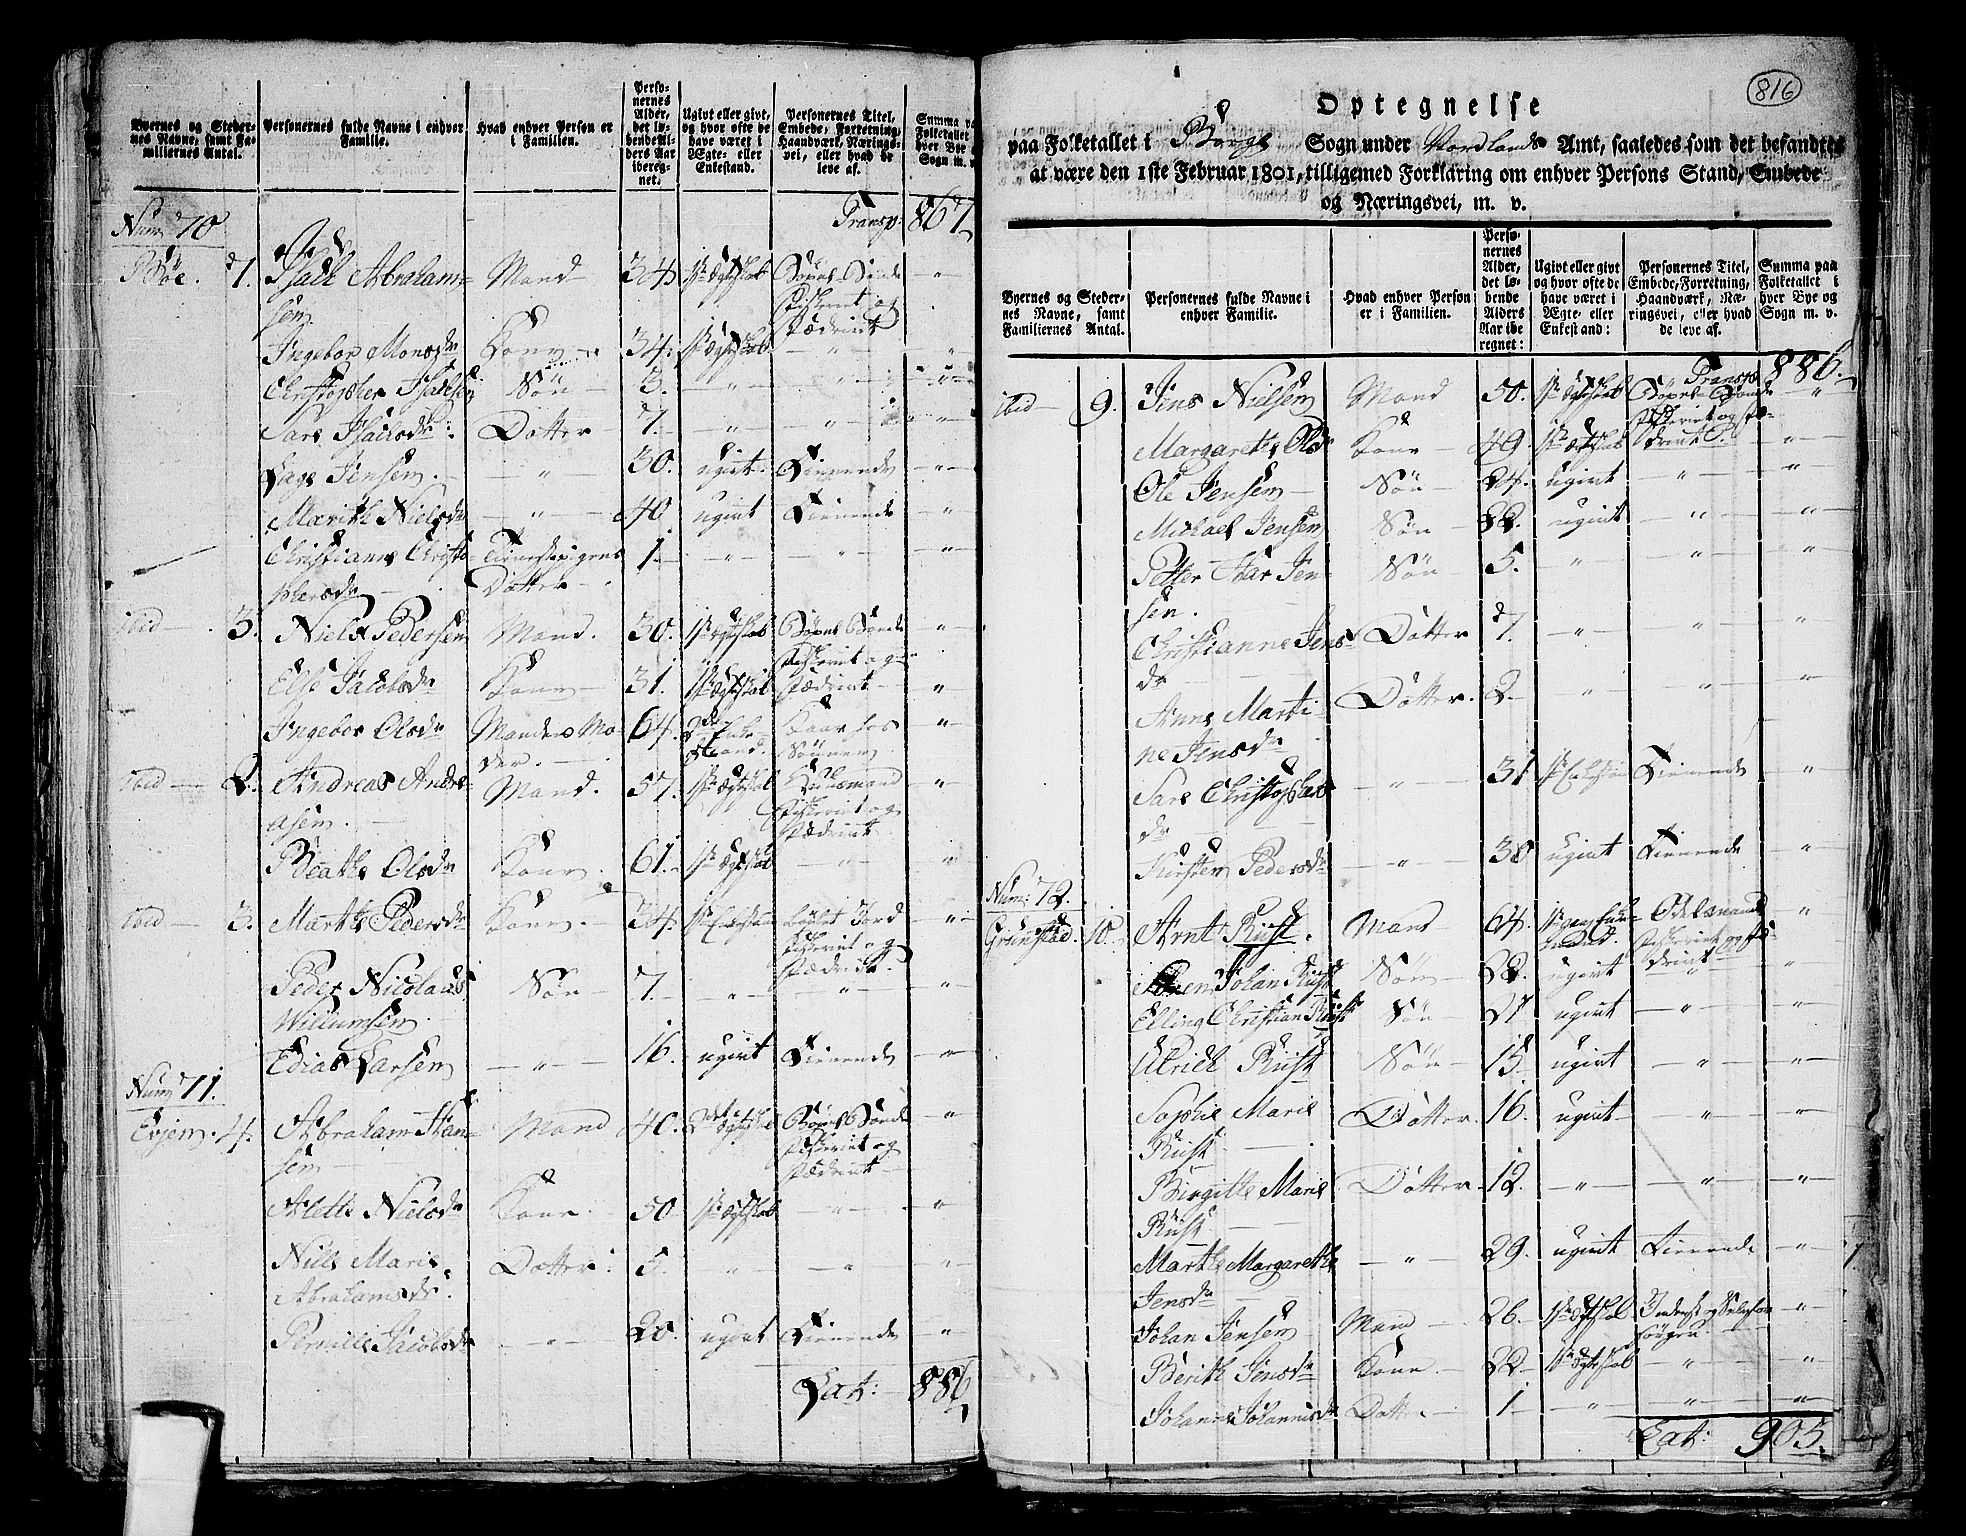 Byernes og Steder-
nes Navne, samt Fa-
miliernes Antal.
Personernes fulde Navne i enhver
Familie.
Hvad enhver Person er
i Familien.
Perso-
nernes
Alder,
det lø-
bende Al-
ders Aar
iberegnet.
Ugivt eller givt,
og hvor ofte de
have været i
Ægte- eller
Enkestand.
Personernes Titel,
Embede, Forretning,
Haandværk, Nærings-
vei, eller hvad de
leve af.
Summa paa
Folketallet i
hver Bye og
Sogn m. v.
Num 70 Transp: 867
Bøe. 7. Isach Abraham- Mand 34 1ste Ægteskab Bøxel Bonde
sen Fiskerie og
Ingebor Monsdr Kone 34 1ste Ægteskab
Christopher Isachsen Søn 3.
Sara Isachsdr: Datter 7.
Jensen. 30. ugivt Tienende
Marithe Nielsdr 40 ugivt Tienende
Christianna Christo- Datter 1.
phersdr
ibid 3. Niels Pedersen Mand. 30. 1ste Ægteskab Bøxel Bonde
Fiskerie og
Else Jacobsdr Kone 31. 1ste Ægteskab
Ingebor Olsdr Mandens Mo- 64. 2den Enke-
der. stand. Sønnen.
ibid 2. Andreas Andre- Mand. 57. 1ste Ægteskab Huusmand
asen. Fiskerie og
Beathe Olsdr Kone. 61. 1ste Ægteskab
ibid 3. Marthe Pedersdr Kone. 34 1ste Enkestand
Fiskerie og
Peder Nicolaus Søn 7.
Willumsen.
Edias Larsen 16. ugivt Tienende
Num 71.
Evjen. 4. Abraham Han- Mand 40. 2det Ægteskab Bøxel Bonde
sen Fiskerie og
Alette Nielsdr Kone. 50 1ste Ægteskab
Niels Maria Datter: 5.
Abrahamsdr.
Pernille Jacobsdr 20. ugivt Tienende
Lat: 886
816
Optegnelse
paa Folketallet i Borge Sogn under Nordlands Amt, saaledes som det befandtes
at være den 1ste Februar 1801, tilligemed Forklaring om enhver Persons Stand, Embede
og Næringsvei, m. v.
Byernes og Steder-
nes Navne, samt
Familiernes Antal.
Personernes fulde Navne i
enhver Familie.
Hvad enhver Person
er i Familien.
Perso-
nernes
Alder,
det lø-
bende
Alders
Aar ibe
regnet:
Ugivt eller givt
og hvor ofte de
have været i
Ægte- eller
Enkestand:
Personernes Titel,
Embede, Forretning,
Haandværk, Næ-
ringsvei, eller hvad
de leve af.
Summa paa
Folketallet i
hver Bye og
Sogn m. v.
Transp 886.
ibid 9. Jens Nielsen Mand 50. 1ste Ægteskab Bøxel Bonde
Margarethe Olsdr Kone 49. 1ste Ægteskab
Ole Jensen Søn 24. ugivt
Michael Jensen Søn 22. ugivt
Petter Jen- Søn 5.
sen.
Christianne Jens- Datter 7.
dr
Anna Marti- Datter. 2.
ne Jensdr
Sara Christophers 31 1ste Enkestand Tienende
dr
Kirsten Pedersdr 30 ugivt Tienende
Num: 72.
Grimstad. 10. Arnt Rust. Mand 64. Odelsmand
Søren Johan Rust Søn 22. ugivt
Elling Christian Rust Søn 27 ugivt
Ulrich Rust Søn 15 ugivt
Sophie Marie Datter. 16. ugivt
Rust.
Birgitte Marie Datter. 12.
Rust
Marthe Margarethe 29. ugivt Tienende
Jensdr
Johan Jensen Mand 26. 1ste Ægteskab
Berith Jensdr Kone. 22. 1ste Ægteskab
Johanna Johannisdr Datter 1
Lat: 905.